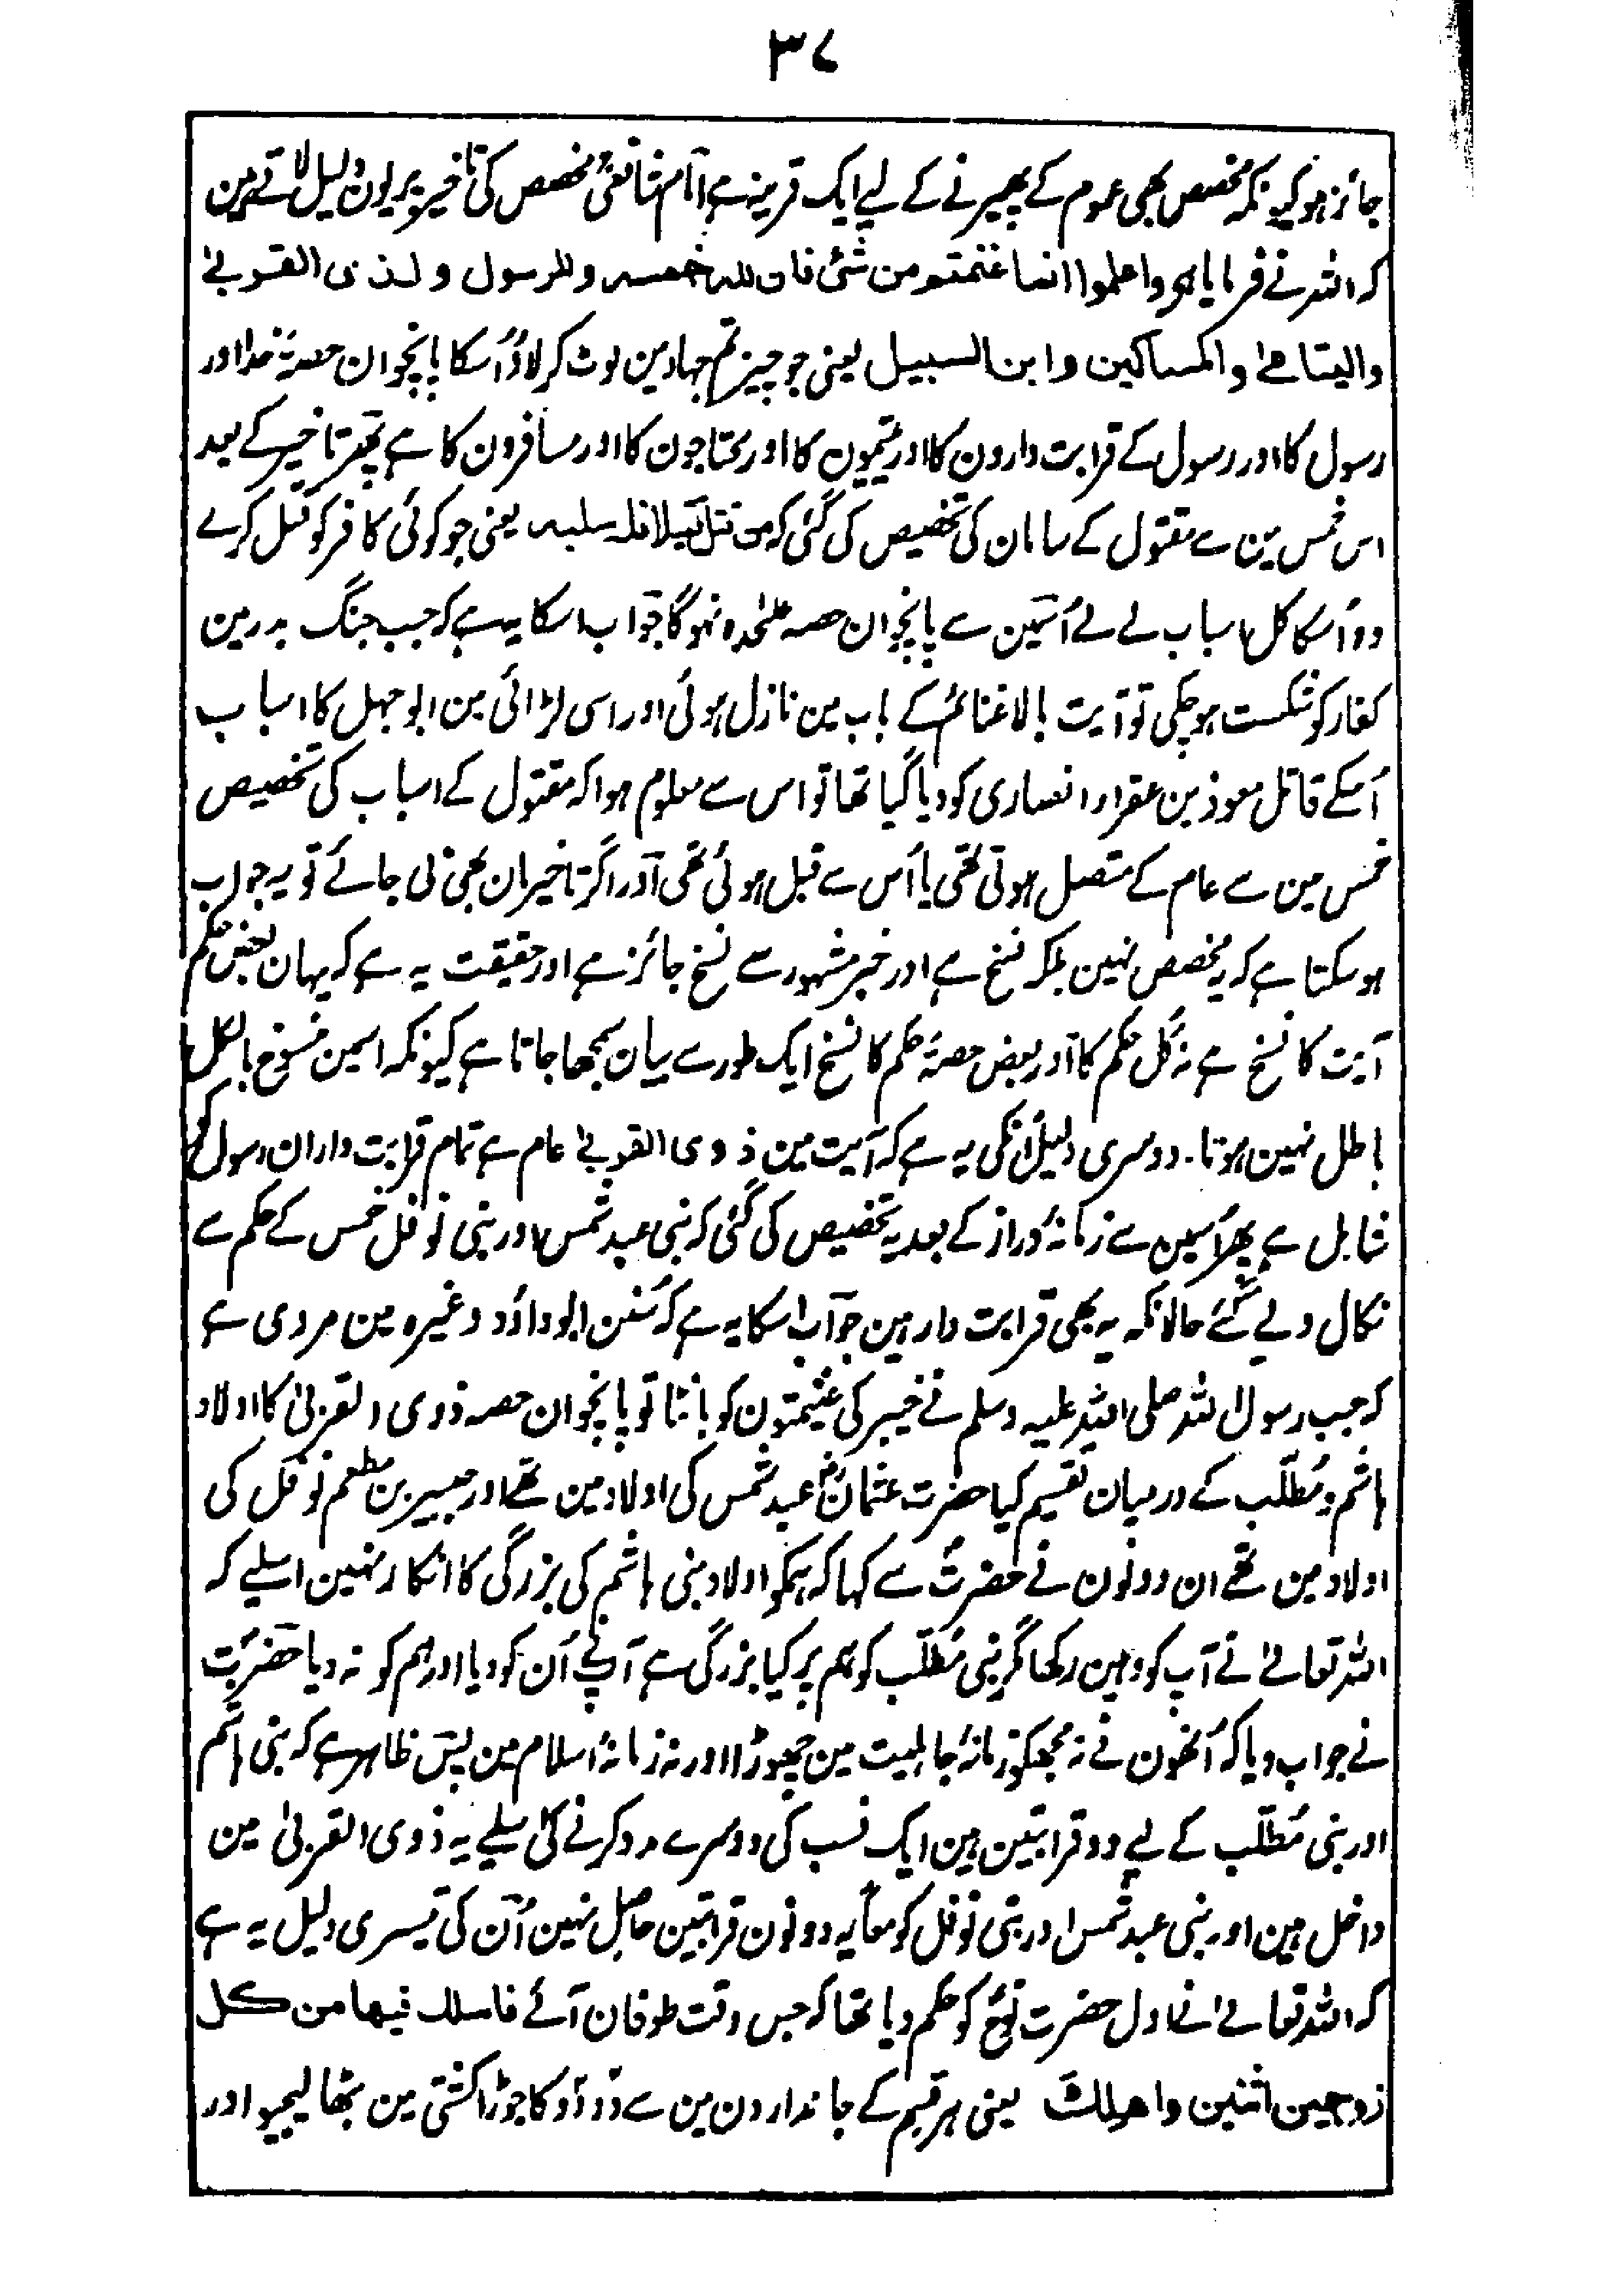 ٣٧
جائز ہو کیونکہ مخصص بھی عموم کے پھیرنے کے لیے ایک قرینہ ہے امام شافعیؒ مخصص کی تاخیر پر یون دلیل لاتے ہین
کہ اللہ نے فرمایا ہی واعلموا انما غنمتم من شئ فان للہ خمسہ وللرسول ولذی القربےٰ
والیتامےٰ والمساکین وابن السبیل یعنی جو چیز تم جہاد مین لوٹ کر لاؤ اُسکا پانچوان حصہ خدا اور
رسول کا اور رسول کے قرابت دارون کا اور یتیمون کا اور محتاجون کا اور مسافرون کا ہے پھر تاخیر کے بعد
اس خمس مین سے مقتول کے سامان کی تخصیص کی گئی کہ من قتل قتیلا فلہ سلبہ یعنی جو کوئی کافر کو قتل کرے
وہ اُسکا کل اسباب لے لے اُسمین سے پانچوان حصہ علٰحدہ نہوگا جواب اسکا یہ ہے کہ جب جنگ بدر مین
کفار کو شکست ہو چکی تو آیت بالا غنائم کے باب مین نازل ہوئی اور اسی لڑائی مین ابو جہل کا اسباب
اُسکے قاتل معوذ بن عقرار انصاری کو دیا گیا تھا تو اس سے معلوم ہوا کہ مقتول کے اسباب کی تخصیص
خمس مین سے عام کے متصل ہوتی تھی یا اُس سے قبل ہوئی تھی اور اگر تاخیر مان بھی لی جائے تو یہ جواب
ہو سکتا ہے کہ یہ مخصص نہین بلکہ نسخ ہے اور خبر مشہور سے نسخ جائز ہے اور حقیقت یہ ہے کہ یہان بعض حکم
آیت کا نسخ ہے نہ کُل حکم کا اور بعض حصۂ حکم کا نسخ ایک طور سے بیان سمجھا جاتا ہے کیونکہ اسمین منسوخ بالکل
باطل نہین ہوتا۔ دوسری دلیل اُنکی یہ ہے کہ آیت مین ذوی القربےٰ عام ہے تمام قرابت داران رسول کو
شامل ہے پھر اُسمین سے زمانۂ دراز کے بعد یہ تخصیص کی گئی کہ بنی عبد شمس اور بنی نوفل خمس کے حکم سے
نکال دیے گئے حالانکہ یہ بھی قرابت دار ہین جواب اسکا یہ ہے کہ سُنن ابو داؤد وغیرہ مین مروی ہے
کہ جب رسول اللہ صلی اللہ علیہ وسلم نے خیبر کی غنیمتون کو بانٹا تو پانچوان حصہ ذوی القربیٰ کا اولاد
ہاشم و مُطلّب کے درمیان تقسیم کیا حضرت عثمانؓ عبد شمس کی اولاد مین تھے اور جبیر بن مطعم نوفل کی
اولاد مین تھے ان دونون نے حضرتؐ سے کہا کہ ہمکو اولاد بنی ہاشم کی بزرگی کا انکار نہین اسلیے کہ
اللہ تعالےٰ نے آپ کو وہین رکھا مگر بنی مُطلّب کو ہم پر کیا بزرگی ہے آپنے اُن کو دیا اور ہم کو نہ دیا حضرتؐ
نے جواب دیا کہ اُنھون نے نہ مجھکو زمانۂ جاہلیت مین چھوڑا اور نہ زمانۂ اسلام مین پس ظاہر ہے کہ بنی ہاشم
اور بنی مُطلّب کے لیے دو قرابتین ہین ایک نسب کی دوسرے مدد کرنے کی اسلیے یہ ذوی القربیٰ مین
داخل ہین اور بنی عبد شمس اور بنی نوفل کو معاً یہ دونون قرابتین حاصل نہین اُن کی تیسری دلیل یہ ہے
کہ اللہ تعالےٰ نے اول حضرت نوحؑ کو حکم دیا تھا کہ جس وقت طوفان آئے فاسلک فیھا من کل
زوجین اثنین واھلک یعنی ہر قسم کے جاندارون مین سے دو دو کا جوڑا کشتی مین بٹھا لیجیو اور